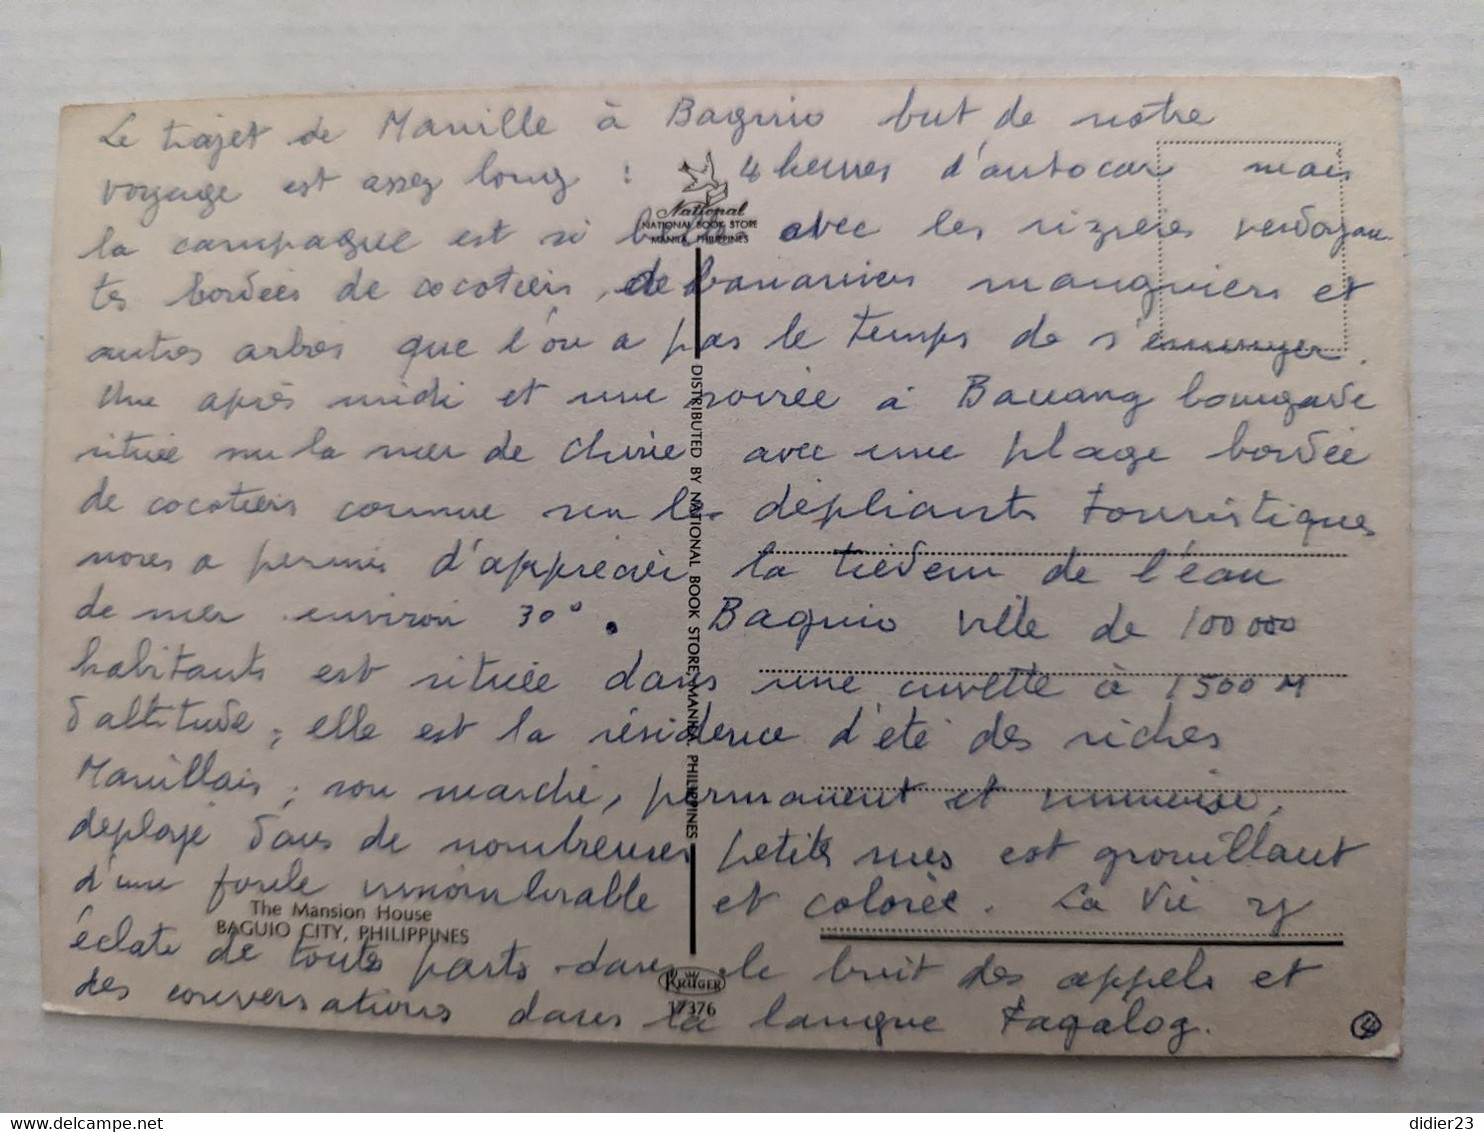 Le trajet de Manille à Baguio but de notre
voyage est assez long : 4 heures d'autocar mais
la campagne est si belle avec les rizières verdoyan-
tes bordées de cocotiers, de bananiers manguiers et
autres arbres que l'on a pas le temps de s'ennuyer.
Une après midi et une soirée à Bauang bourgade
située sur la mer de Chine avec une plage bordée
de cocotiers comme sur les dépliants touristiques
nous a permis d'apprécier la tiédeur de l'eau
de mer environ 30°. Baguio ville de 100 000
habitants est située dans une cuvette à 1500 M
d'altitude, elle est la résidence d'été des riches
Manillais, son marché, permanent et immense,
déployé dans de nombreuses petites rues est grouillant
d'une foule innombrable et colorée. La Vie y
éclate de toutes parts dans le bruit des appels et
des conversations dans la langue Tagalog.
4
National
NATIONAL BOOK STORE
MANILA, PHILIPPINES
DISTRIBUTED BY NATIONAL BOOK STORE, MANILA, PHILIPPINES
The Mansion House
BAGUIO CITY, PHILIPPINES
KRÜGER
17376
delcampe.net
didier23